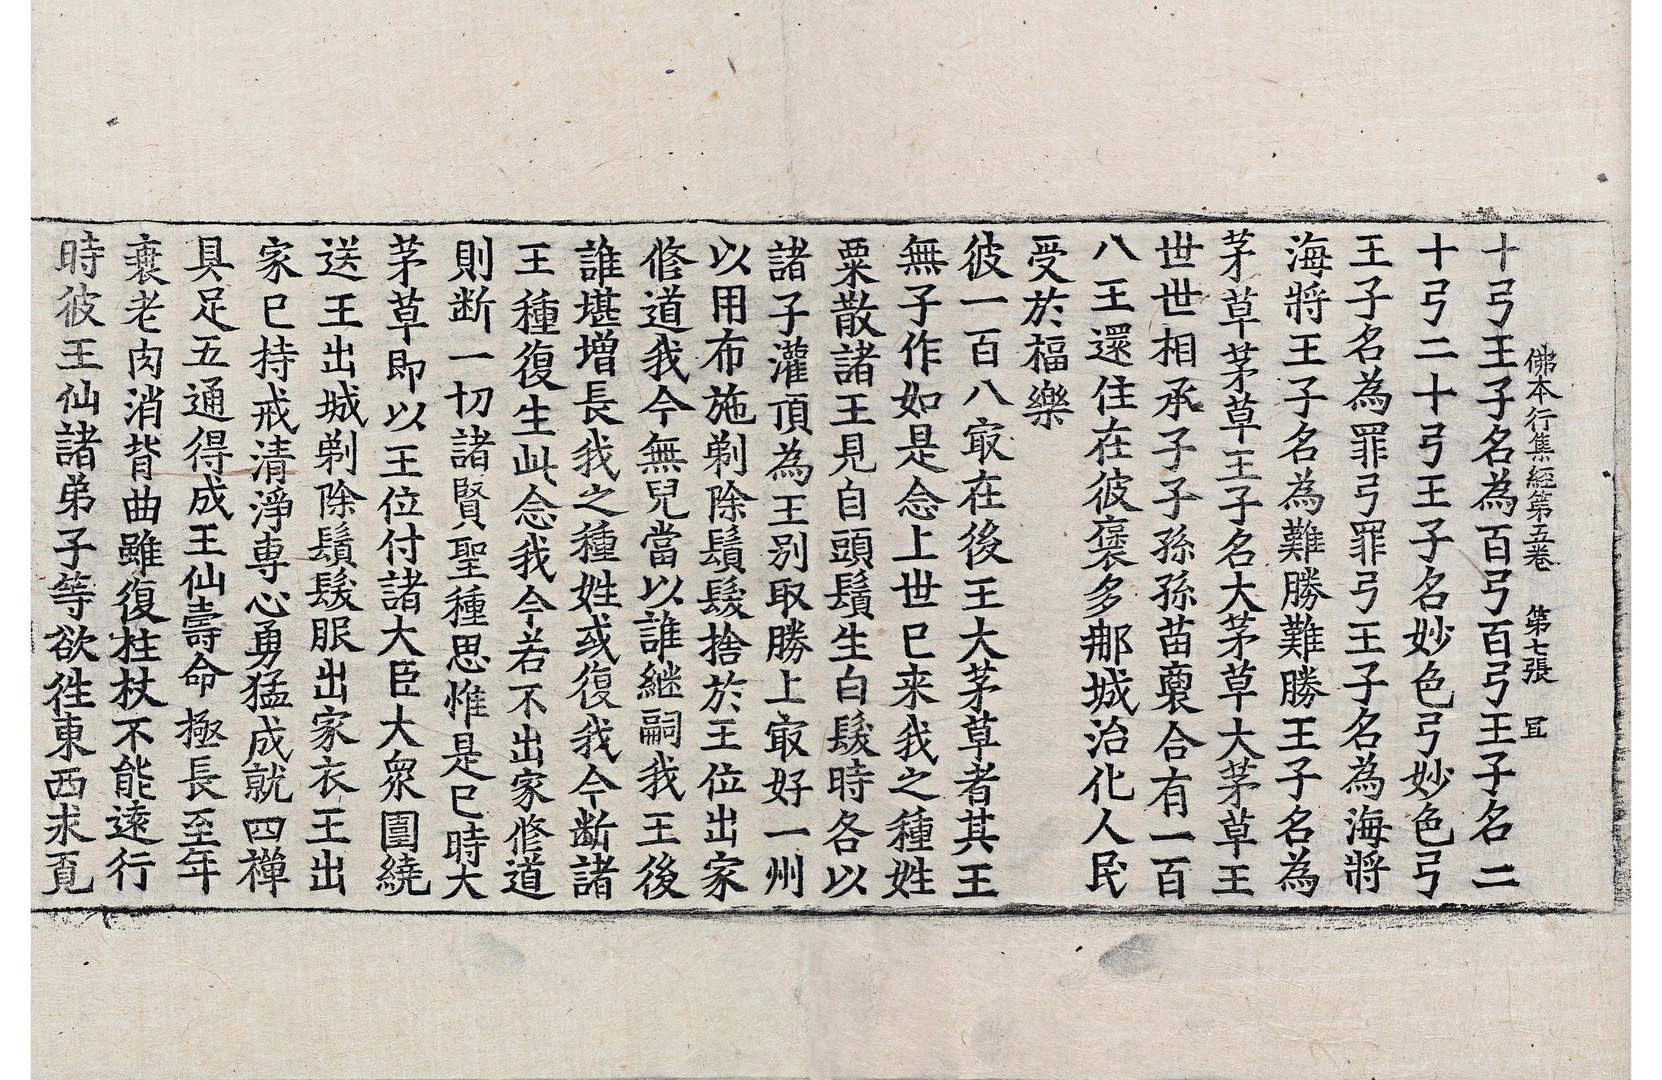 佛本行集經第五卷　第七張　冝
十弓王子名為百弓百弓王子名二
十弓二十弓王子名妙色弓妙色弓
王子名為罪弓罪弓王子名為海將
海將王子名為難勝難勝王子名為
茅草茅草王子名大茅草大茅草王
世世相承子子孫孫苗裔合有一百
八王還住在彼褒多那城治化人民
受於福樂
彼一百八㝡在後王大茅草者其王
無子作如是念上世已来我之種姓
粟散諸王見自頭鬚生白髮時各以
諸子灌頂為王別取勝上㝡好一州
以用布施剃除鬚髮捨於王位出家
修道我今無兒當以誰継嗣我王後
誰堪增長我之種姓或復我今断諸
王種復生此念我今若不出家修道
則断一切諸賢聖種思惟是已時大
茅草即以王位付諸大臣大衆圍繞
送王出城剃除鬚髮服出家衣王出
家已持戒清淨専心勇猛成就四禪
具足五通得成王仙壽命極長至年
衰老肉消背曲雖復拄杖不能遠行
時彼王仙諸弟子等欲往東西求覓